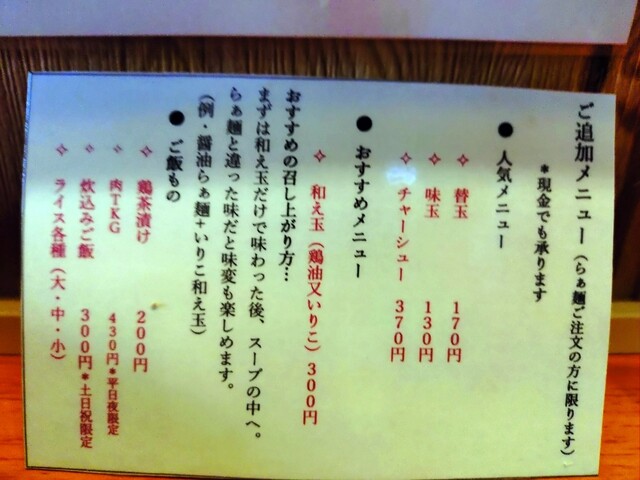 ご追加メニュー（らぁ麺ご注文の方に限ります）
*現金でも承ります
● 人気メニュー
✧ 替玉 170円
✧ 味玉 130円
✧ チャーシュー 370円
● おすすめメニュー
✧ 和え玉（鶏油又いりこ）300円
おすすめの召し上がり方…
まずは和え玉だけで味わった後、スープの中へ。
らぁ麺と違った味だと味変も楽しめます。
（例・醤油らぁ麺+いりこ和え玉）
● ご飯もの
✧ 鶏茶漬け 200円
✧ 肉TKG 430円*平日夜限定
✧ 炊込みご飯 300円*土日祝限定
✧ ライス各種（大・中・小）